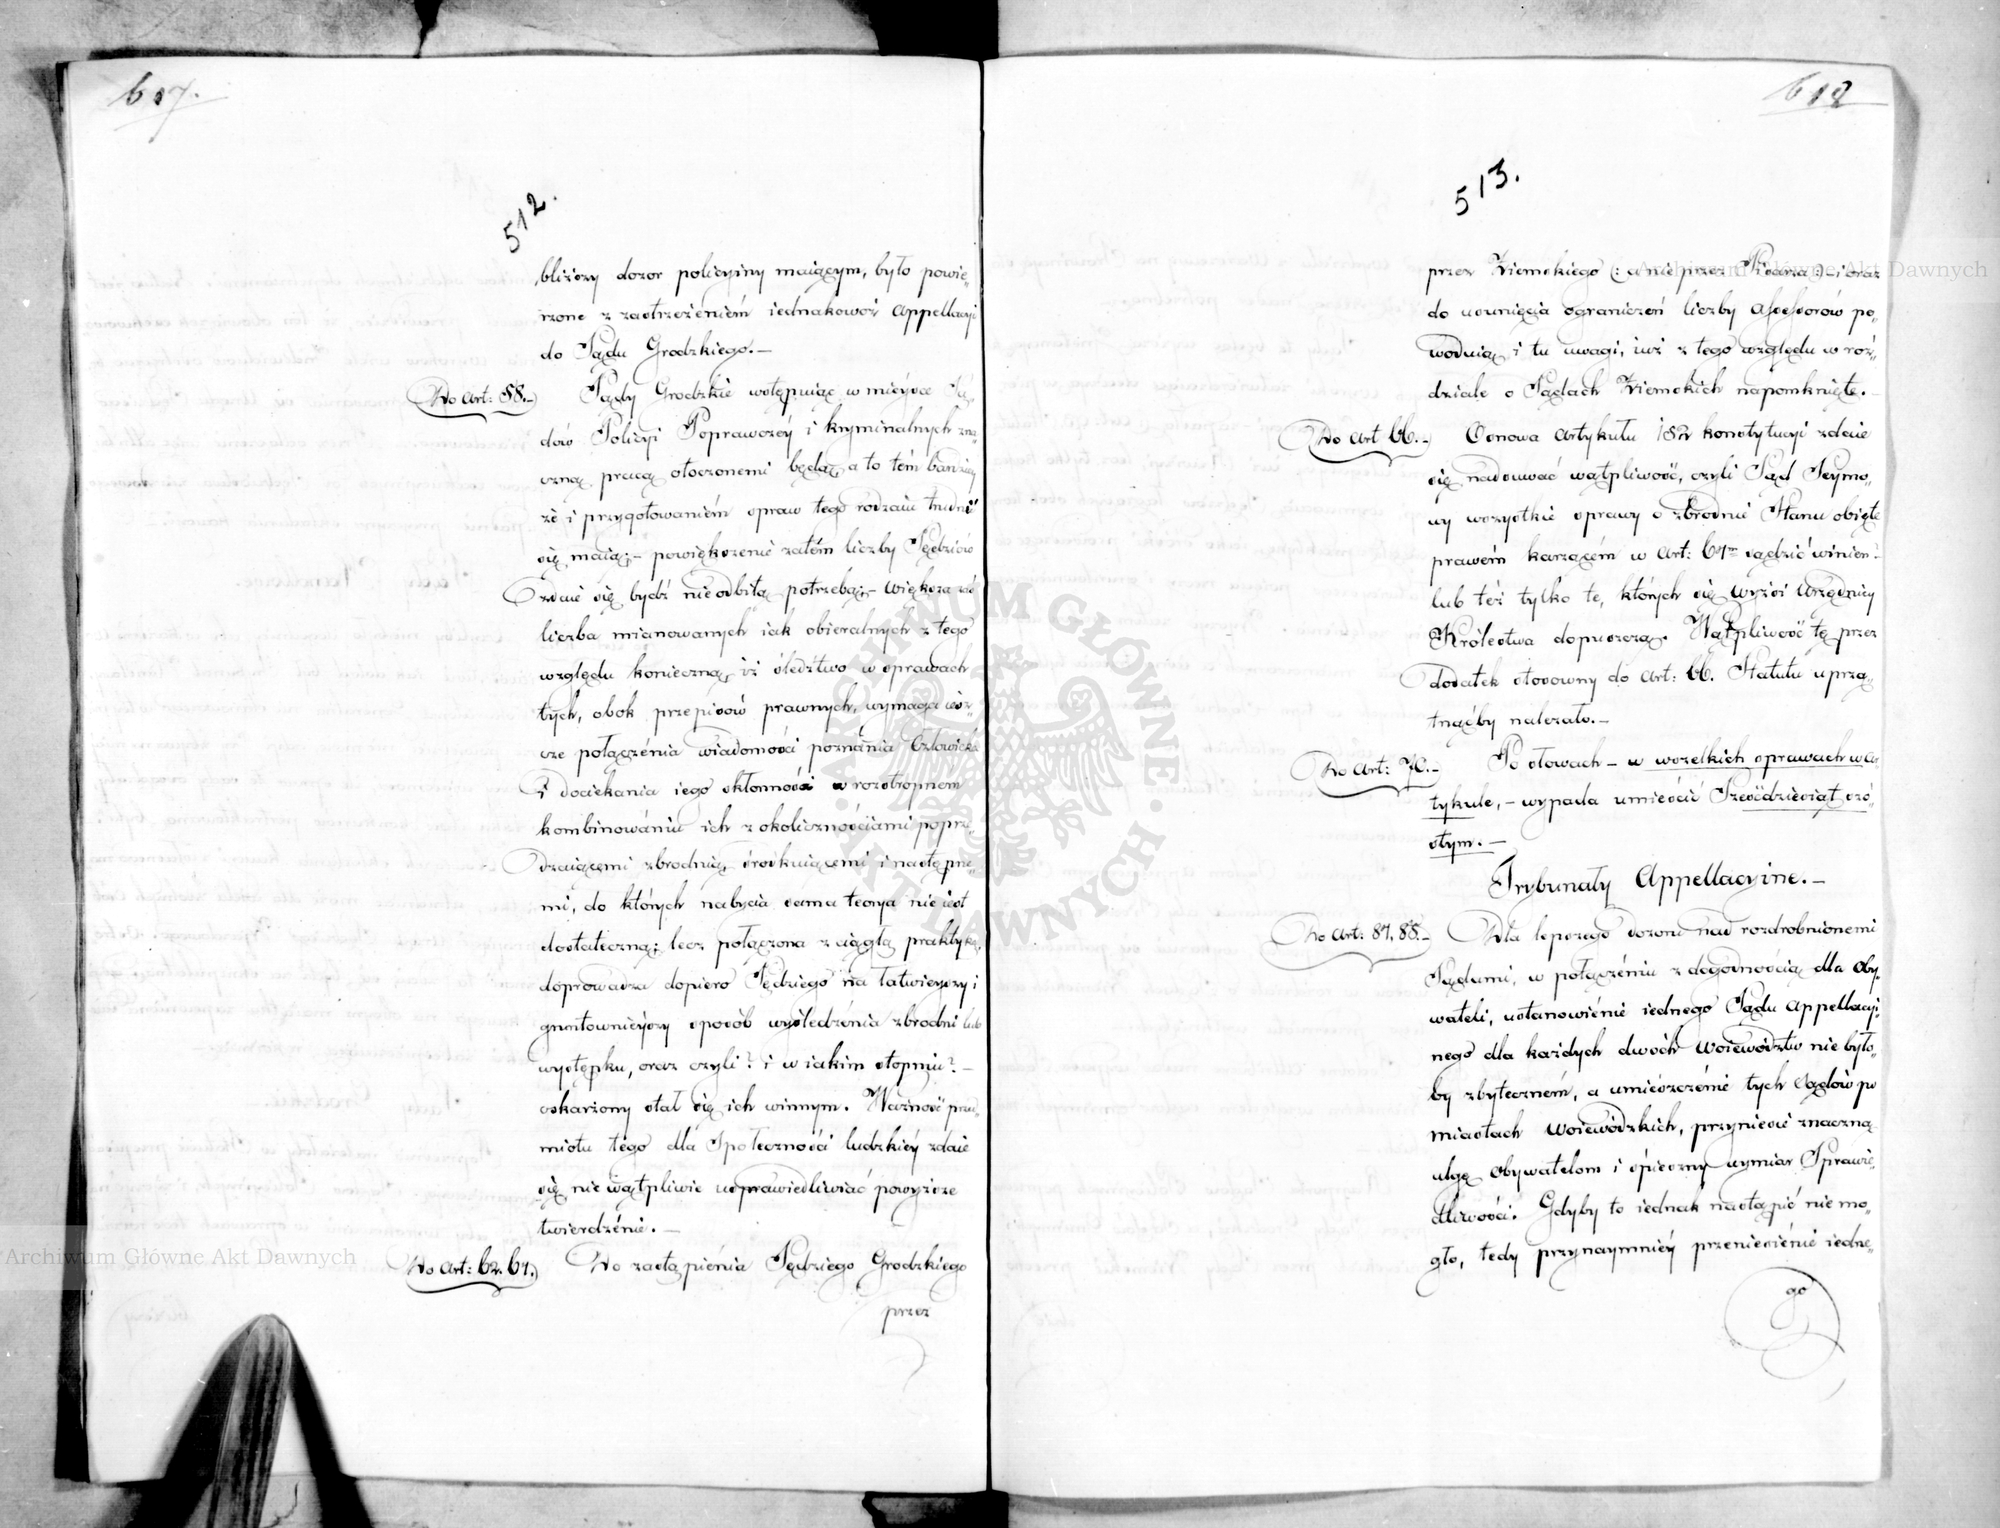 617.
512.
bliższy dozor policyiny maiącym, było powie„
rzone z zastrzeżeniem iednakowoż Appellacyi
do Sądu Grodzkiego.—
Do Art: 58.—
Sądy Grodzkie wstępuiąc w mieysce Są„
dów Policyi Poprawczey i kryminalnych zna„
czną pracą otoczonemi będą, a to tém bardziey
że i przygotowaniem spraw tego rodzaiu trudnić
się maią;— powiększenie zatém liczby Sędziów
zdaie się bydź nieodbitą potrzebą;— większa zaś
liczba mianowanych iak obieralnych z tego
względu konieczną, iż śledztwo w sprawach
tych, obok przepisów prawnych, wymaga ieszcze
połączenia wiadomości poznania Człowieka
i dociekania iego skłonności w roztropnem
kombinowaniu ich z okolicznościami poprze„
dzaiącemi zbrodnią, środkuiącemi i następne„
mi, do których nabycia sama teorya nie iest
dostateczną; lecz połączona z ciągłą praktyką,
doprowadza dopiero Sędziego na łatwieyszy i
gruntownieyszy sposób wyśledzenia zbrodni lub
występku, oraz czyli? i w iakim stopniu?—
oskarżony stał się ich winnym. Ważność przed„
miotu tego dla Społeczności ludzkiéy zdaie
się niewątpliwie usprawiedliwiać powyższe
twierdzenie.—
Do Art: 62. 67.
Do zastąpienia Sędziego Grodzkiego
przez
618
513.
przez Ziemskiego (: a nie przez Pisarza :) — i oraz
do usunięcia ograniczeń liczby Assessorów po„
wodują i tu uwagi, iuż z tego względu w roz„
dziale o Sądach Ziemskich napomknięte.—
Do Art 66.—
Osnowa Artykułu 152 konstytucyi zdaie
się nadsuwać wątpliwość, czyli Sąd Seymo„
wy wszystkie sprawy o zbrodnie Stanu obięte
prawem karzącém w Art: 67m sądzić winien?—
lub też tylko te, których się wyżsi Urzędnicy
Królestwa dopuszczą. Wątpliwość tę przez
dodatek stosowny do Art: 66. Statutu uprzą„
tnąćby należało.—
Do Art: 70.—
Po słowach — w wszelkich sprawach w Ar„
tykule, — wypada umieścić Sześćdziesiąt szó„
stym.—
Trybunały Appellacyine.—
Do Art: 87, 88.—
Dla lepszego dozoru nad rozdrobnionemi
Sądami, w połączeniu z dogodnością dla Oby„
wateli, ustanowienie iednego Sądu Appellacyi„
nego dla każdych dwóch Woiewództw nie było„
by zbytecznem, a umieszczenie tych Sądów po
miastach Woiewódzkich, przyniesie znaczną
ulgę Obywatelom i śpieszny wymiar Sprawie„
dliwości. Gdyby to iednak nastąpić nie mo„
gło, tedy przynaymniey przeniesienie iedne„
go
Archiwum Główne Akt Dawnych
Archiwum Główne Akt Dawnych
ARCHIWUM GŁÓWNE · AKT DAWNYCH ·